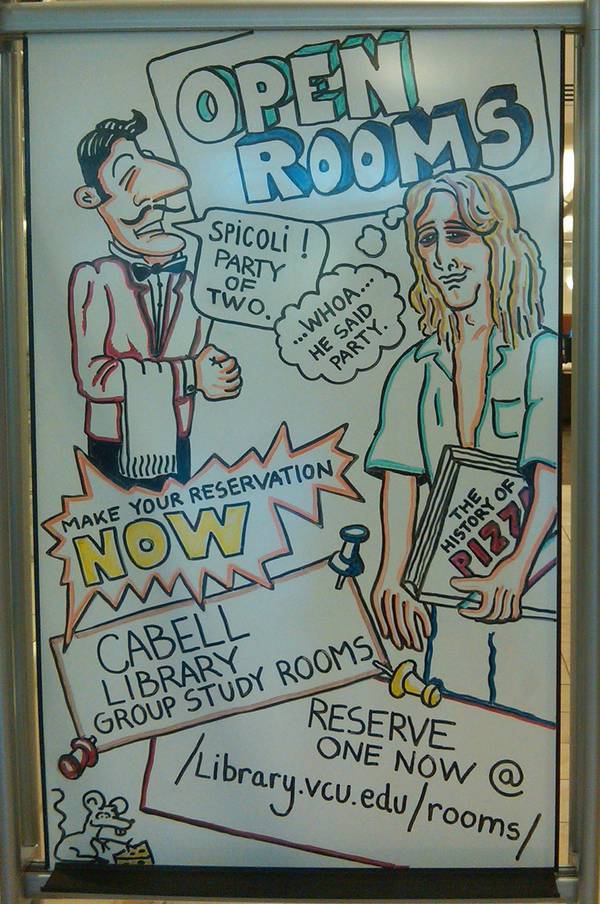 OPEN
ROOMS
SPICOLI !
PARTY
OF
TWO.
...WHOA...
HE SAID
PARTY.
THE
HISTORY OF
PIZZA
MAKE YOUR RESERVATION
NOW
CABELL
LIBRARY
GROUP STUDY ROOMS
RESERVE
ONE NOW @
/Library.vcu.edu/rooms/